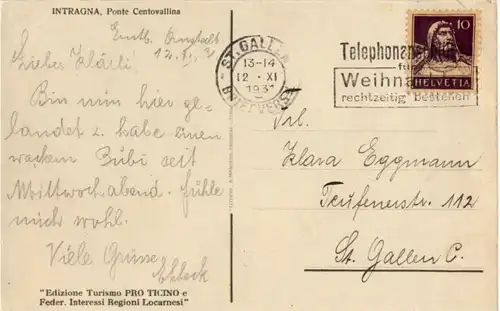 INTRAGNA, Ponte Centovallina
Entb. Anstalt
12. XI. 31
Liebes Klärli,
Bin nun hier ge-
landet u. habe einen
wackern Bübi seit
Mittwoch abend. Fühle
mich wohl.
Viele Grüsse
"Edizione Turismo PRO TICINO e
Feder. Interessi Regioni Locarnesi"
ST. GALLEN
13-14
12 · XI
1931
BRIEFVERSAND
Telephonan
für
Weihna
rechtzeitig bestellen
10
HELVETIA
Frl.
Klara Eggmann
Teufenerstr. 112
St. Gallen C.